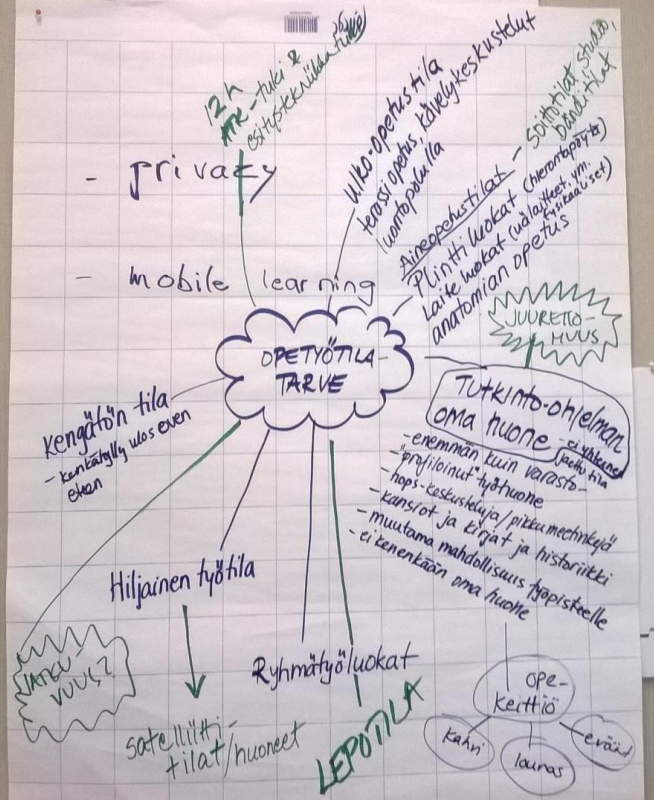 12h
ATK-tuki &
esitystekniikkatuki
- privacy
- mobile learning
Ulko-opetus tila
terassiopetus, kävelykeskustelut
luontopolulla
Aineopetustilat - Soittotilat, studio,
bänditilat
Plinttiluokat (hierontapöytä)
Laite luokat (välaitteet, ym.
fysikaaliset)
anatomian opetus
JUURETTO-
MUUS
OPETYÖTILA-
TARVE
Tutkinto-ohjelman
oma huone
- ei yhteinen
jaettu tila
- enemmän kuin varasto-
- "profiloinut" työhuone
- hops-keskusteluja/pikkumeetinkejä
- kansiot ja kirjat ja historiikki
- muutama mahdollisuus työpisteelle
- ei kenenkään oma huone
Kengätön tila
- kenkähylly ulos oven
eteen
Hiljainen työtila
satelliitti-
tilat/huoneet
JATKU-
VUUS?
Ryhmätyöluokat
LEPOTILA
ope-
keittiö
kahvi
lounas
eväät